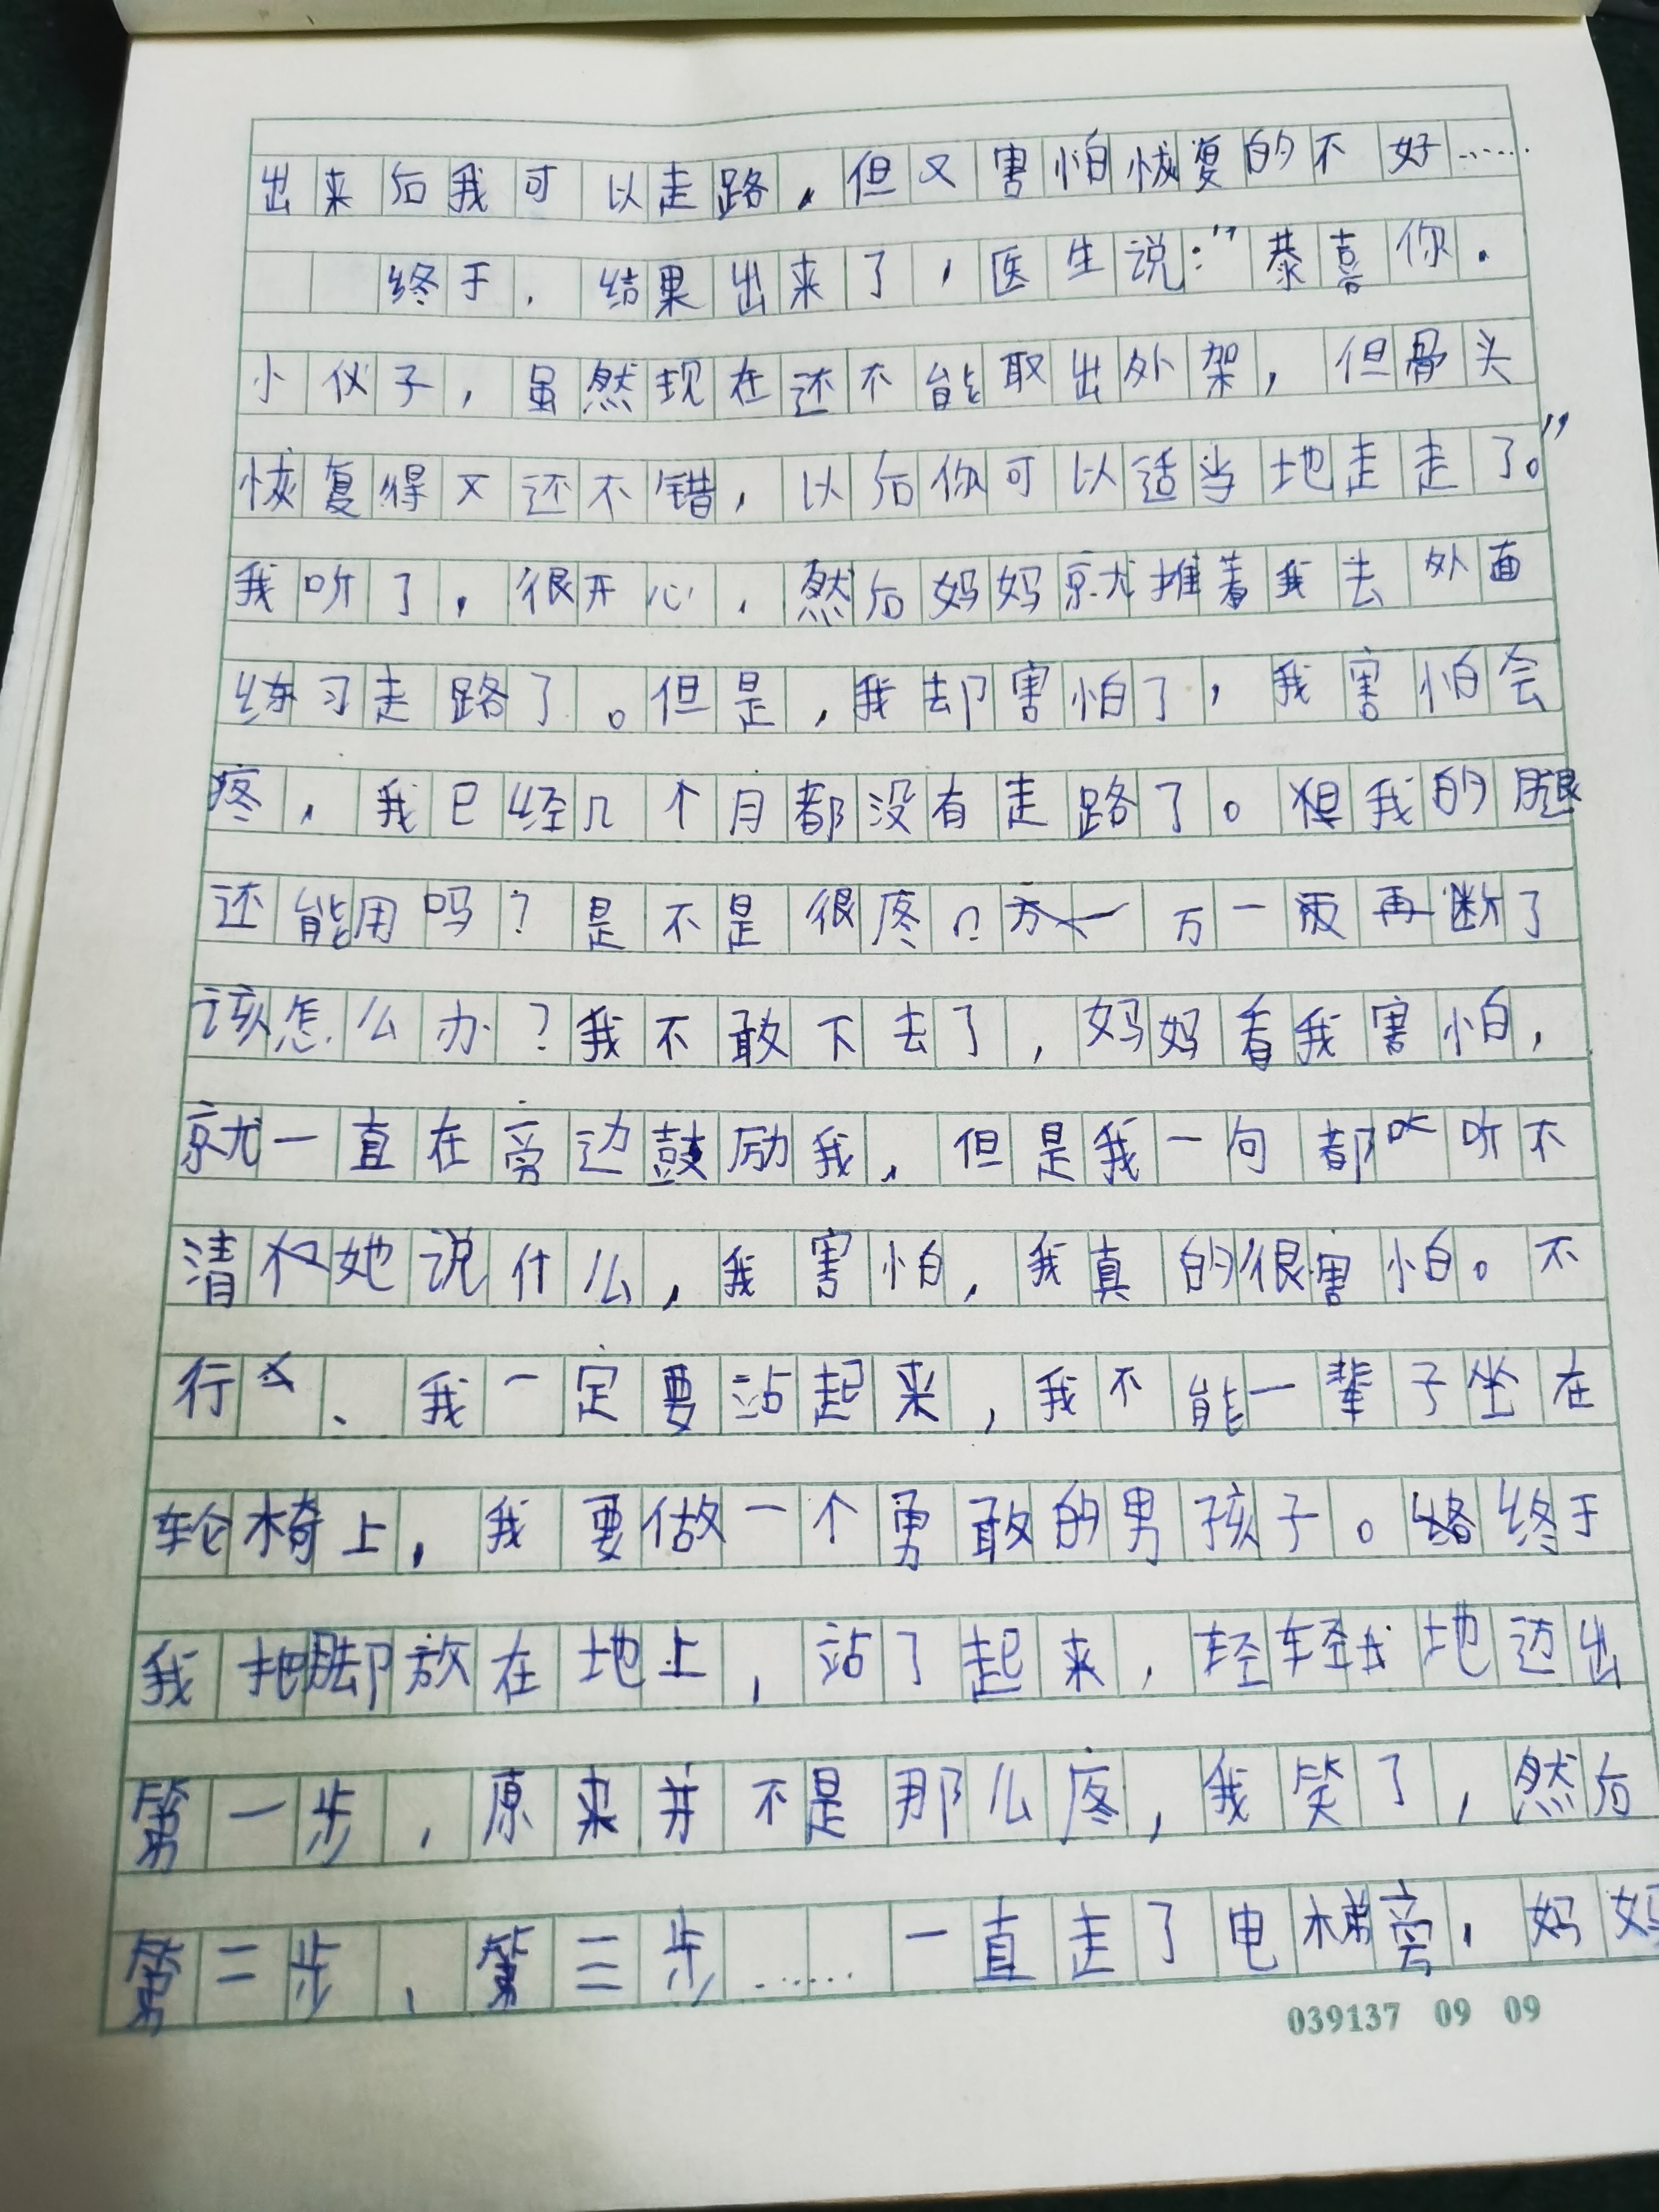 出来后我可以走路，但又害怕恢复的不好……
终于，结果出来了，医生说：“恭喜你，
小伙子，虽然现在还不能取出外架，但骨头
恢复得又还不错，以后你可以适当地走走了。”
我听了，很开心，然后妈妈就推着我去外面
练习走路了。但是，我却害怕了，我害怕会
疼，我已经几个月都没有走路了。但我的腿
还能用吗？是不是很疼？万一再断了
该怎么办？我不敢下去了，妈妈看我害怕，
就一直在旁边鼓励我，但是我一句都听不
清她说什么，我害怕，我真的很害怕。不
行、我一定要站起来，我不能一辈子坐在
轮椅上，我要做一个勇敢的男孩子。终于
我把脚放在地上，站了起来，轻轻地迈出
第一步，原来并不是那么疼，我笑了，然后
第二步，第三步……一直走了电梯旁，妈妈
039137 09 09